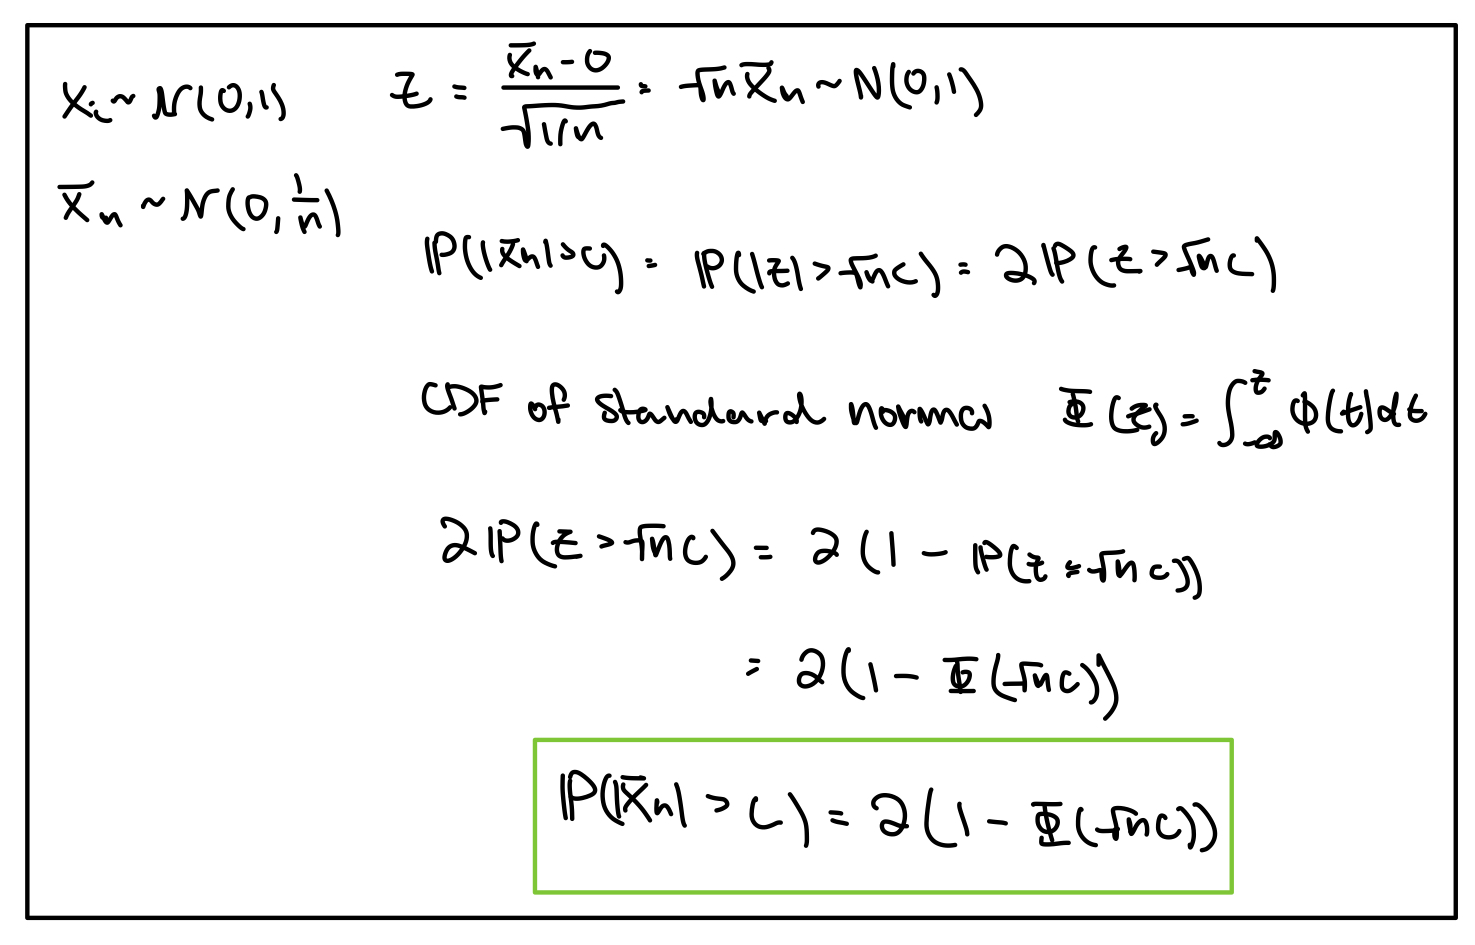 Xᵢ ~ N(0,1)
X̄ₙ ~ N(0, 1/n)
Z = (X̄ₙ - 0)/√(1/n) = √n X̄ₙ ~ N(0,1)
ℙ(|X̄ₙ| > c) = ℙ(|Z| > √n c) = 2ℙ(Z > √n c)
CDF of standard normal Φ(z) = ∫_{-∞}^{z} ϕ(t)dt
2ℙ(Z > √n c) = 2(1 - ℙ(Z ≤ √n c))
= 2(1 - Φ(√n c))
ℙ(|X̄ₙ| > c) = 2(1 - Φ(√n c))